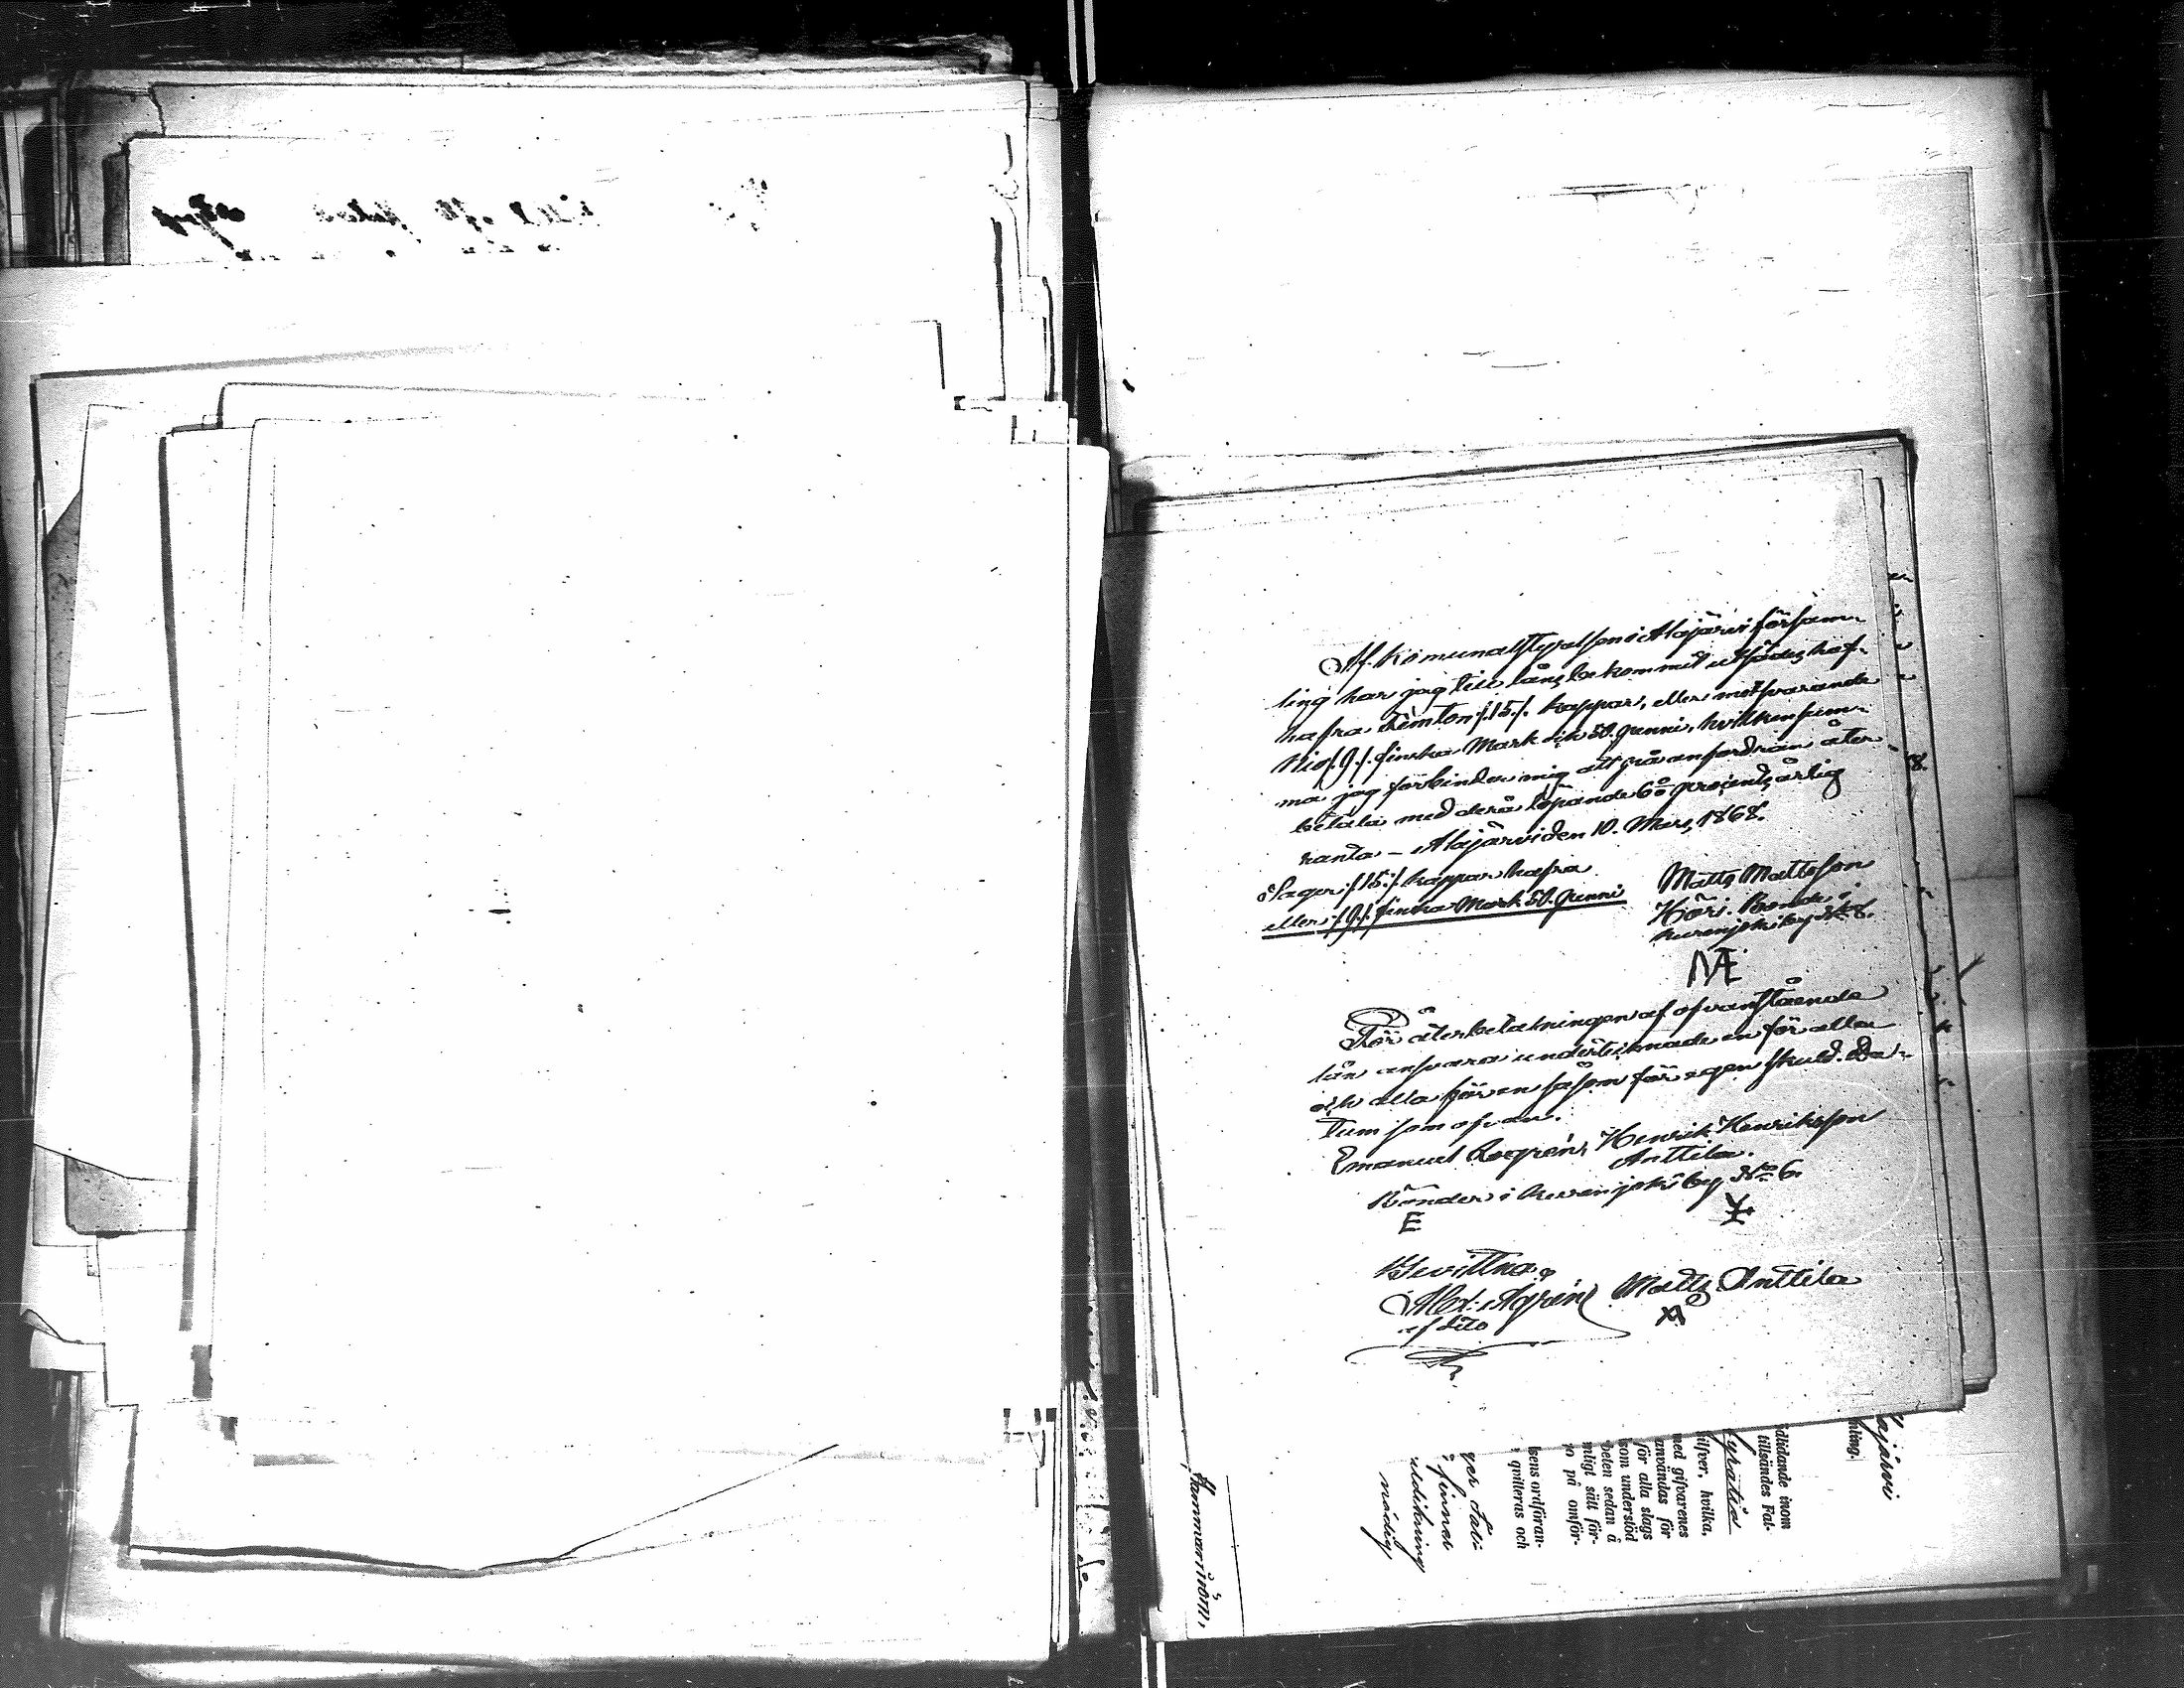 Af Komunalstyrelsen i Alajärvi försam-
ling har jag till låns bekommit utsädes haf-
hafra Femton /.15./. kappar, eller motsvarande
Nio /.9./. finska Mark och 50. penni, hvilken sum-
ma jag förbinder mig att på anfordran åter
betala med derå löpande 6 procents årlig
ranta – Alajärvi den 10. Mars 1868.
Säger /.15./. kappar hafra
eller /.9./. finska Mark 50. penni
Matts Mattsson
Höri. Bonde i
Kurenjoki by No 8.
För återbetalningen af ofvanstående
lån ansvara undertecknade en för alla
och alla för en såsom för egen skuld. Da-
tum som ofvan.
Emanuel Henrik Henriksson
Anttila.
Bönder i Kurenjoki by No 6.
E
Bevittna
Alex: Ågrén Matts Anttila
af dito
ajärvi
mling.
dlidande inom
tillsändes Fat-
gratis
ilfver, hvilka,
med gifvarenes
användas för
för alla slags
som understöd
beten sedan å
nligt sätt för-
jo på omför-
sens ordföran-
, qvitteras och
finnes
nådig
Hammarström,